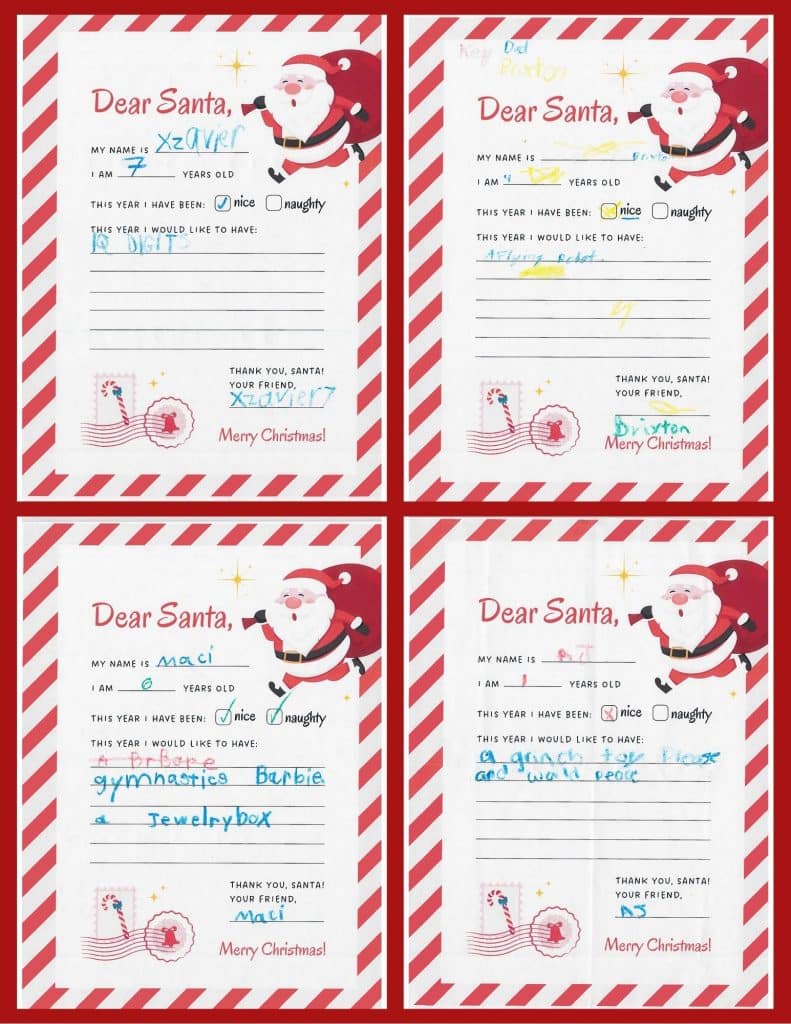 Dear Santa,
MY NAME IS Xzavier
I AM 7 YEARS OLD
THIS YEAR I HAVE BEEN: nice naughty
THIS YEAR I WOULD LIKE TO HAVE:
DIGITS
THANK YOU, SANTA!
YOUR FRIEND,
Xzavier 7
Merry Christmas!
Dad
Brixton
Dear Santa,
MY NAME IS
I AM 4 YEARS OLD
THIS YEAR I HAVE BEEN: nice naughty
THIS YEAR I WOULD LIKE TO HAVE:
A Flying Robot
4
THANK YOU, SANTA!
YOUR FRIEND,
Brixton
Merry Christmas!
Dear Santa,
MY NAME IS Maci
I AM 6 YEARS OLD
THIS YEAR I HAVE BEEN: nice naughty
THIS YEAR I WOULD LIKE TO HAVE:
gymnastics Barbie
a Jewelrybox
THANK YOU, SANTA!
YOUR FRIEND,
Maci
Merry Christmas!
Dear Santa,
MY NAME IS
I AM 1 YEARS OLD
THIS YEAR I HAVE BEEN: nice naughty
THIS YEAR I WOULD LIKE TO HAVE:
a grinch toy Please
and world peace
THANK YOU, SANTA!
YOUR FRIEND,
AJ
Merry Christmas!